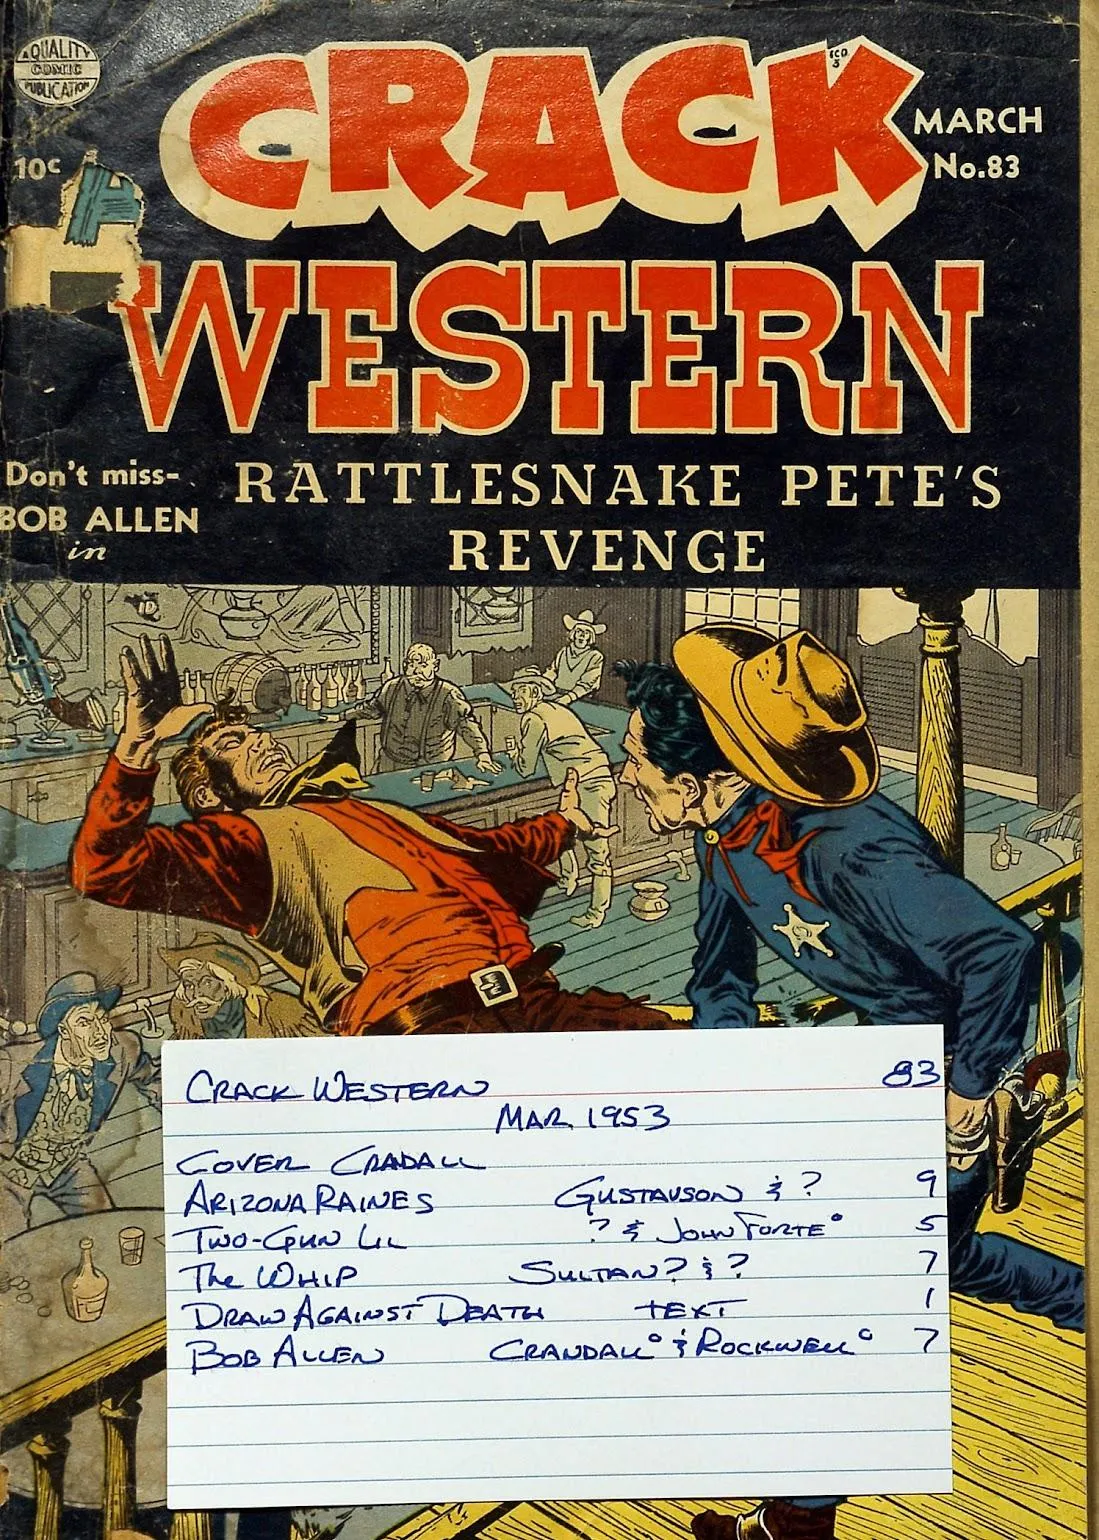 A QUALITY
COMIC
PUBLICATION
10c
CRACK
MARCH
No.83
WESTERN
Don't miss-
BOB ALLEN
in
RATTLESNAKE PETE'S
REVENGE
CRACK WESTERN 83
MAR. 1953
COVER CRANDALL
ARIZONA RAINES GUSTAVSON & ? 9
TWO-GUN LIL ? & JOHN FORTE° 5
The WHIP SULTAN? & ? 7
DRAW AGAINST DEATH TEXT 1
BOB ALLEN CRANDALL° & ROCKWELL° 7